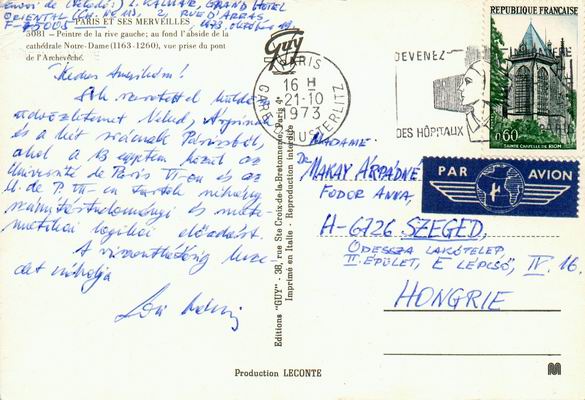 Envoi de (feladó:) L. KALMÁR, GRAND HOTEL
ORIENTAL (Ch. No 2, RUE D'ARRAS,
F-75005 1973. október
PARIS ET SES MERVEILLES
5081 - Peintre de la rive gauche; au fond l'abside de la
cathédrale Notre-Dame (1163-1260), vue prise du pont
de l'Archevêché.
Guy
Kedves Annikám!
Sok szeretettel küldöm
üdvözletemet Neked, Árpinak
és a két Párizsból,
ahol a 13 egyetem közül az
Université de Paris VI-on és az
U. de P. VII-en tartok néhány
számítástudományi és mate-
matikai logikai előadást.
A viszontlátásig
csókolja
PARIS
16 H
21-10
1973
GARE D'AUSTERLITZ
DEVENEZ
DES HÔPITAUX
REPUBLIQUE FRANÇAISE
0,60
SAINTE CHAPELLE DE RIOM
PAR AVION
Madame
MAKAY ÁRPÁDNÉ
FODOR ANNA,
H-6726 SZEGED,
ODESSZA LAKÓTELEP,
II. ÉPÜLET, E LÉPCSŐ, IV. 16.
HONGRIE
Editions "GUY" - 38, rue Ste Croix-de-la-Bretonnerie, Paris 4e
Imprimé en Italie - Reproduction interdite
Production LECONTE